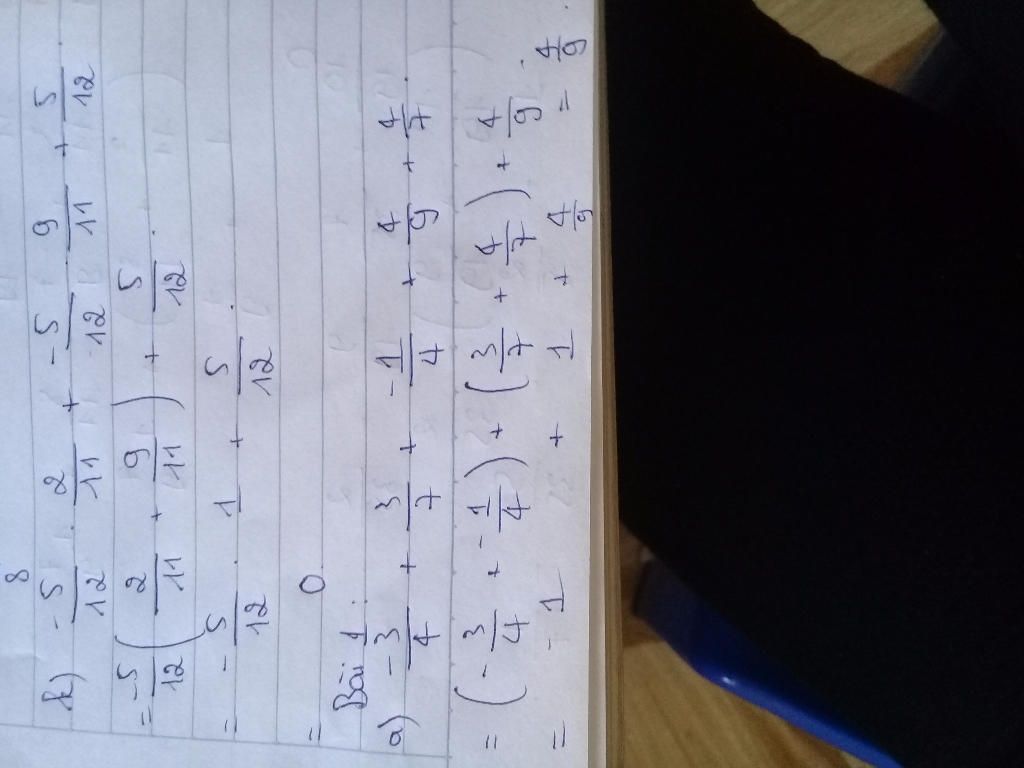 8
k) -5/12 . 2/11 + -5/12 . 9/11 + 5/12 .
= -5/12 ( 2/11 + 9/11 ) + 5/12 .
= -5/12 . 1 + 5/12 .
= 0
Bài 1 :
a) -3/4 + 3/7 + -1/4 + 4/9 + 4/7 .
= ( -3/4 + -1/4 ) + ( 3/7 + 4/7 ) + 4/9 .
= -1 + 1 + 4/9 = 4/9